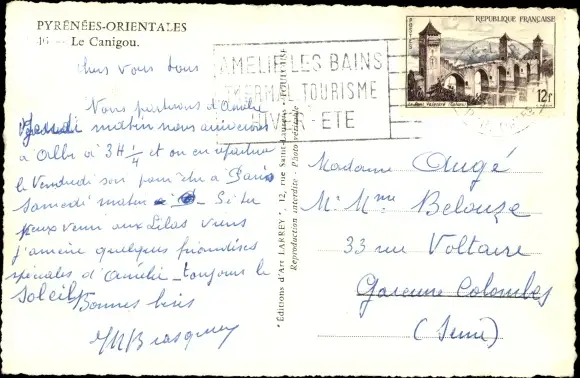 PYRÉNÉES-ORIENTALES
Le Canigou.
chers vous tous
Nous partirons d'Amélie
Jeudi matin nous arriverons
à Albi à 3H 1/4 et on en repartira
le Vendredi soir pour être à Paris
samedi matin Si tu
peux venir aux Lilas viens
j'amène quelques friandises
spéciales d'Amélie toujours le
soleil
Bonnes bises
AMELIE LES BAINS
THERMAL TOURISME
HIVER ETE
REPUBLIQUE FRANÇAISE
12F
"Éditions d'Art LARREY", 12, rue Saint-Laurent - TOULOUSE
Reproduction interdite - Photo véritable
Madame Augé
Mr Mme Belouze
33 rue Voltaire
Garenne Colombes
(Seine)